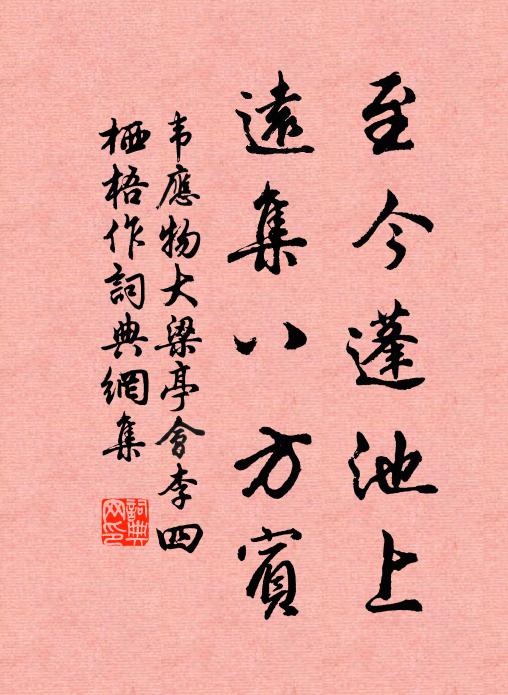 至今蓬池上
遠集八方賓
韦應物大梁亭會李四
栖梧作詞典網集
詞典网印